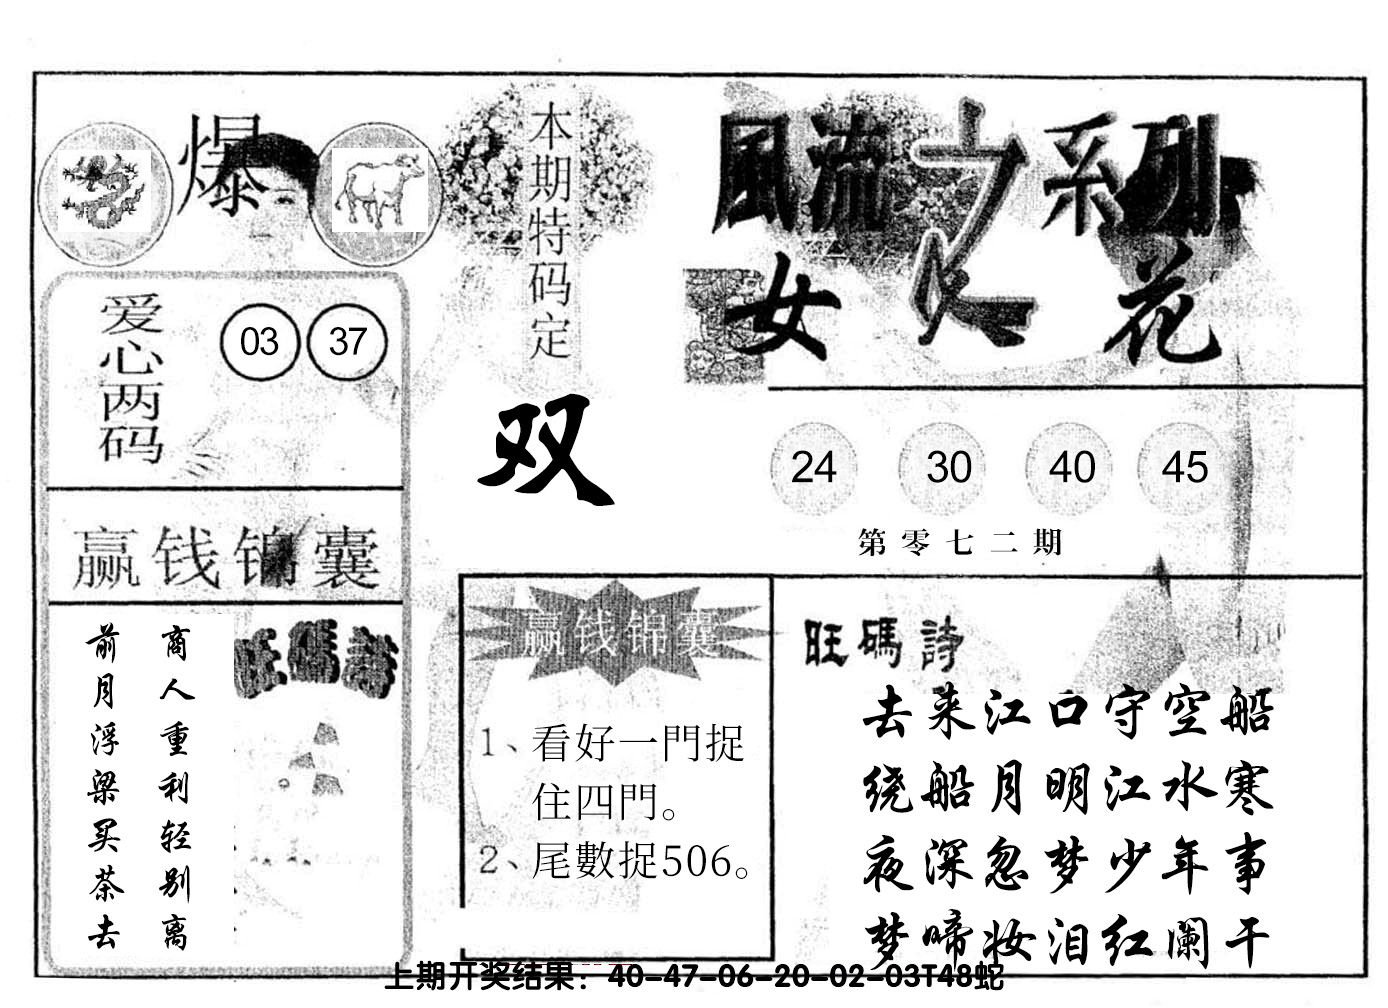 爆
本期特码定
双
爱心两码
03 37
赢钱锦囊
商人重利轻别离
前月浮梁买茶去
旺碼詩
風流之系列
女人花
24 30 40 45
第零七二期
赢钱锦囊
1、看好一門捉
住四門。
2、尾數捉506。
旺碼詩
去来江口守空船
绕船月明江水寒
夜深忽梦少年事
梦啼妆泪红阑干
上期开奖结果：40-47-06-20-02-03T48蛇